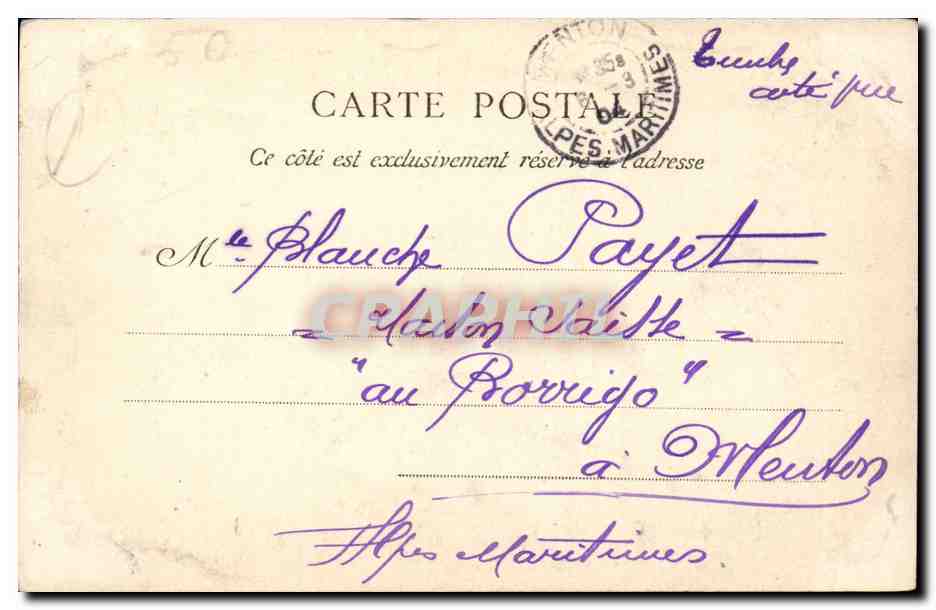 50
MENTON
25 8
3
04
ALPES-MARITIMES
Timbre
coté vue
CARTE POSTALE
Ce côté est exclusivement réservé à l'adresse
Mlle Blanche Payet
CPARAMA
= Maison Saisse =
"au Borrigo"
à Menton
Alpes Maritimes